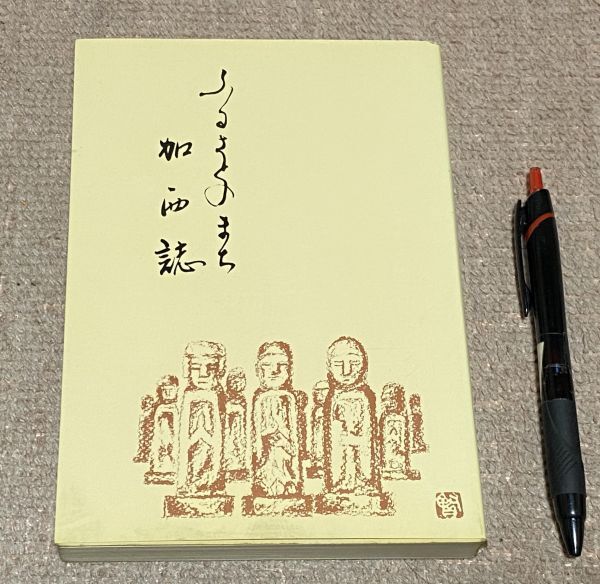 ふるさとのまち
加西誌